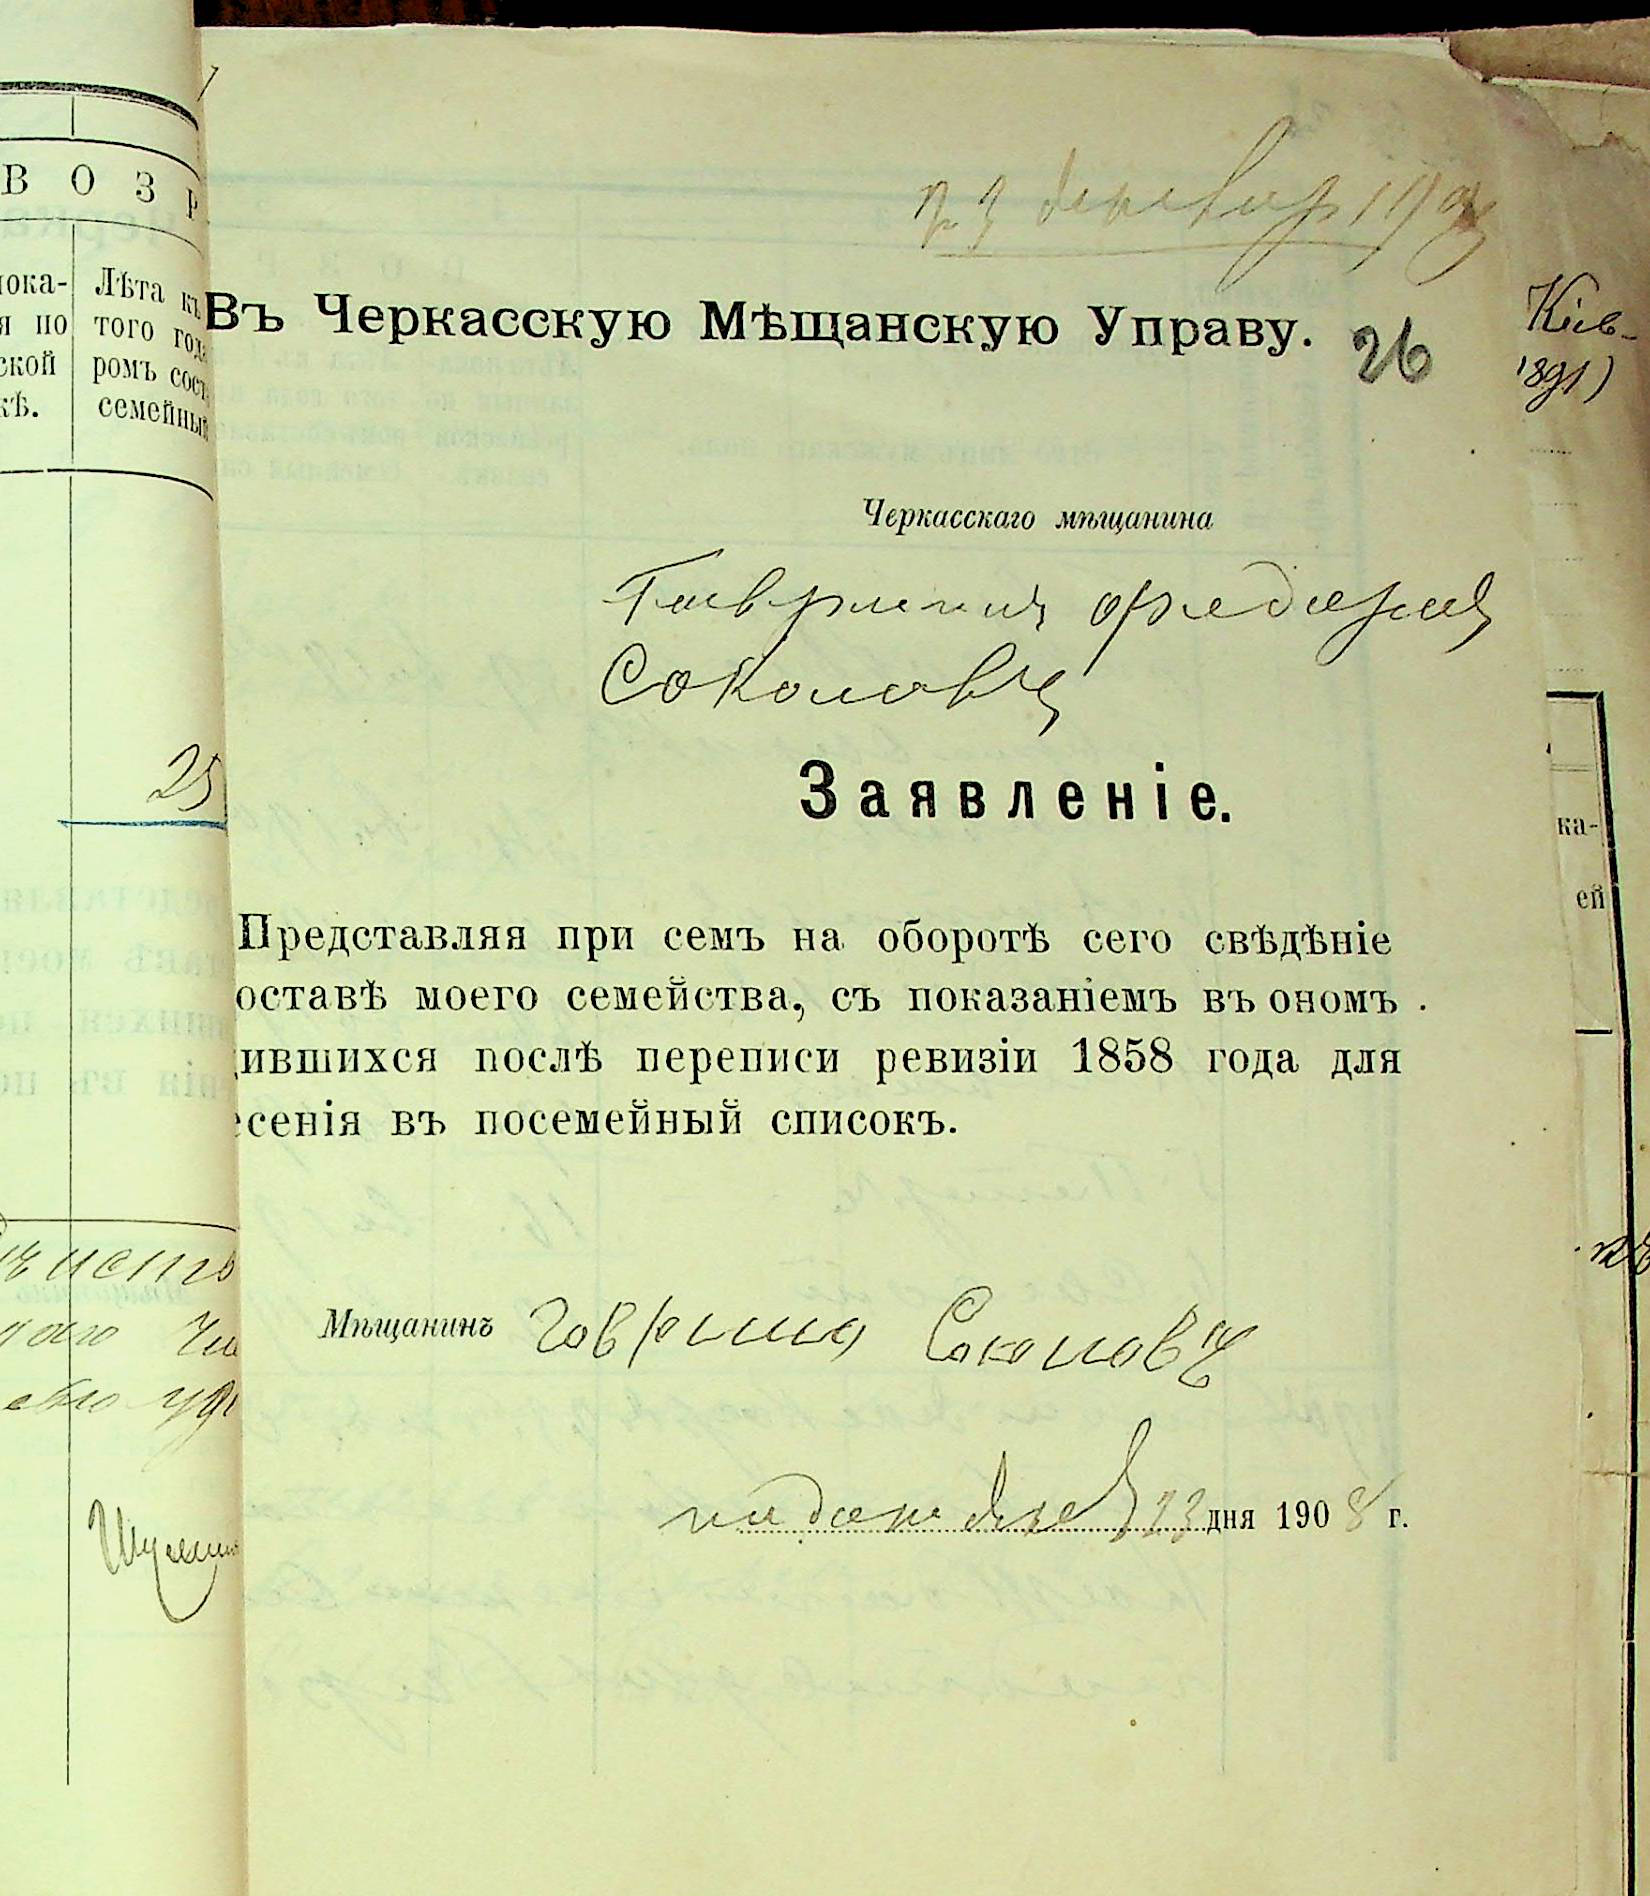 В О З Р
пока-
я по
ской
кѣ.
Лѣта къ
того года
ромъ сост
семейный
25
23 декабр 190
Въ Черкасскую Мѣщанскую Управу.
26
Кіев-
1891)
Черкасскаго мѣщанина
Гавриила Федорова
Соколовъ
Заявленіе.
Представляя при семъ на оборотѣ сего свѣдѣніе
оставѣ моего семейства, съ показаніемъ въ ономъ
ившихся послѣ переписи ревизіи 1858 года для
есенія въ посемейный списокъ.
Мѣщанинъ Гавриила Соколовъ
23 дня 1908 г.
ка-
ей